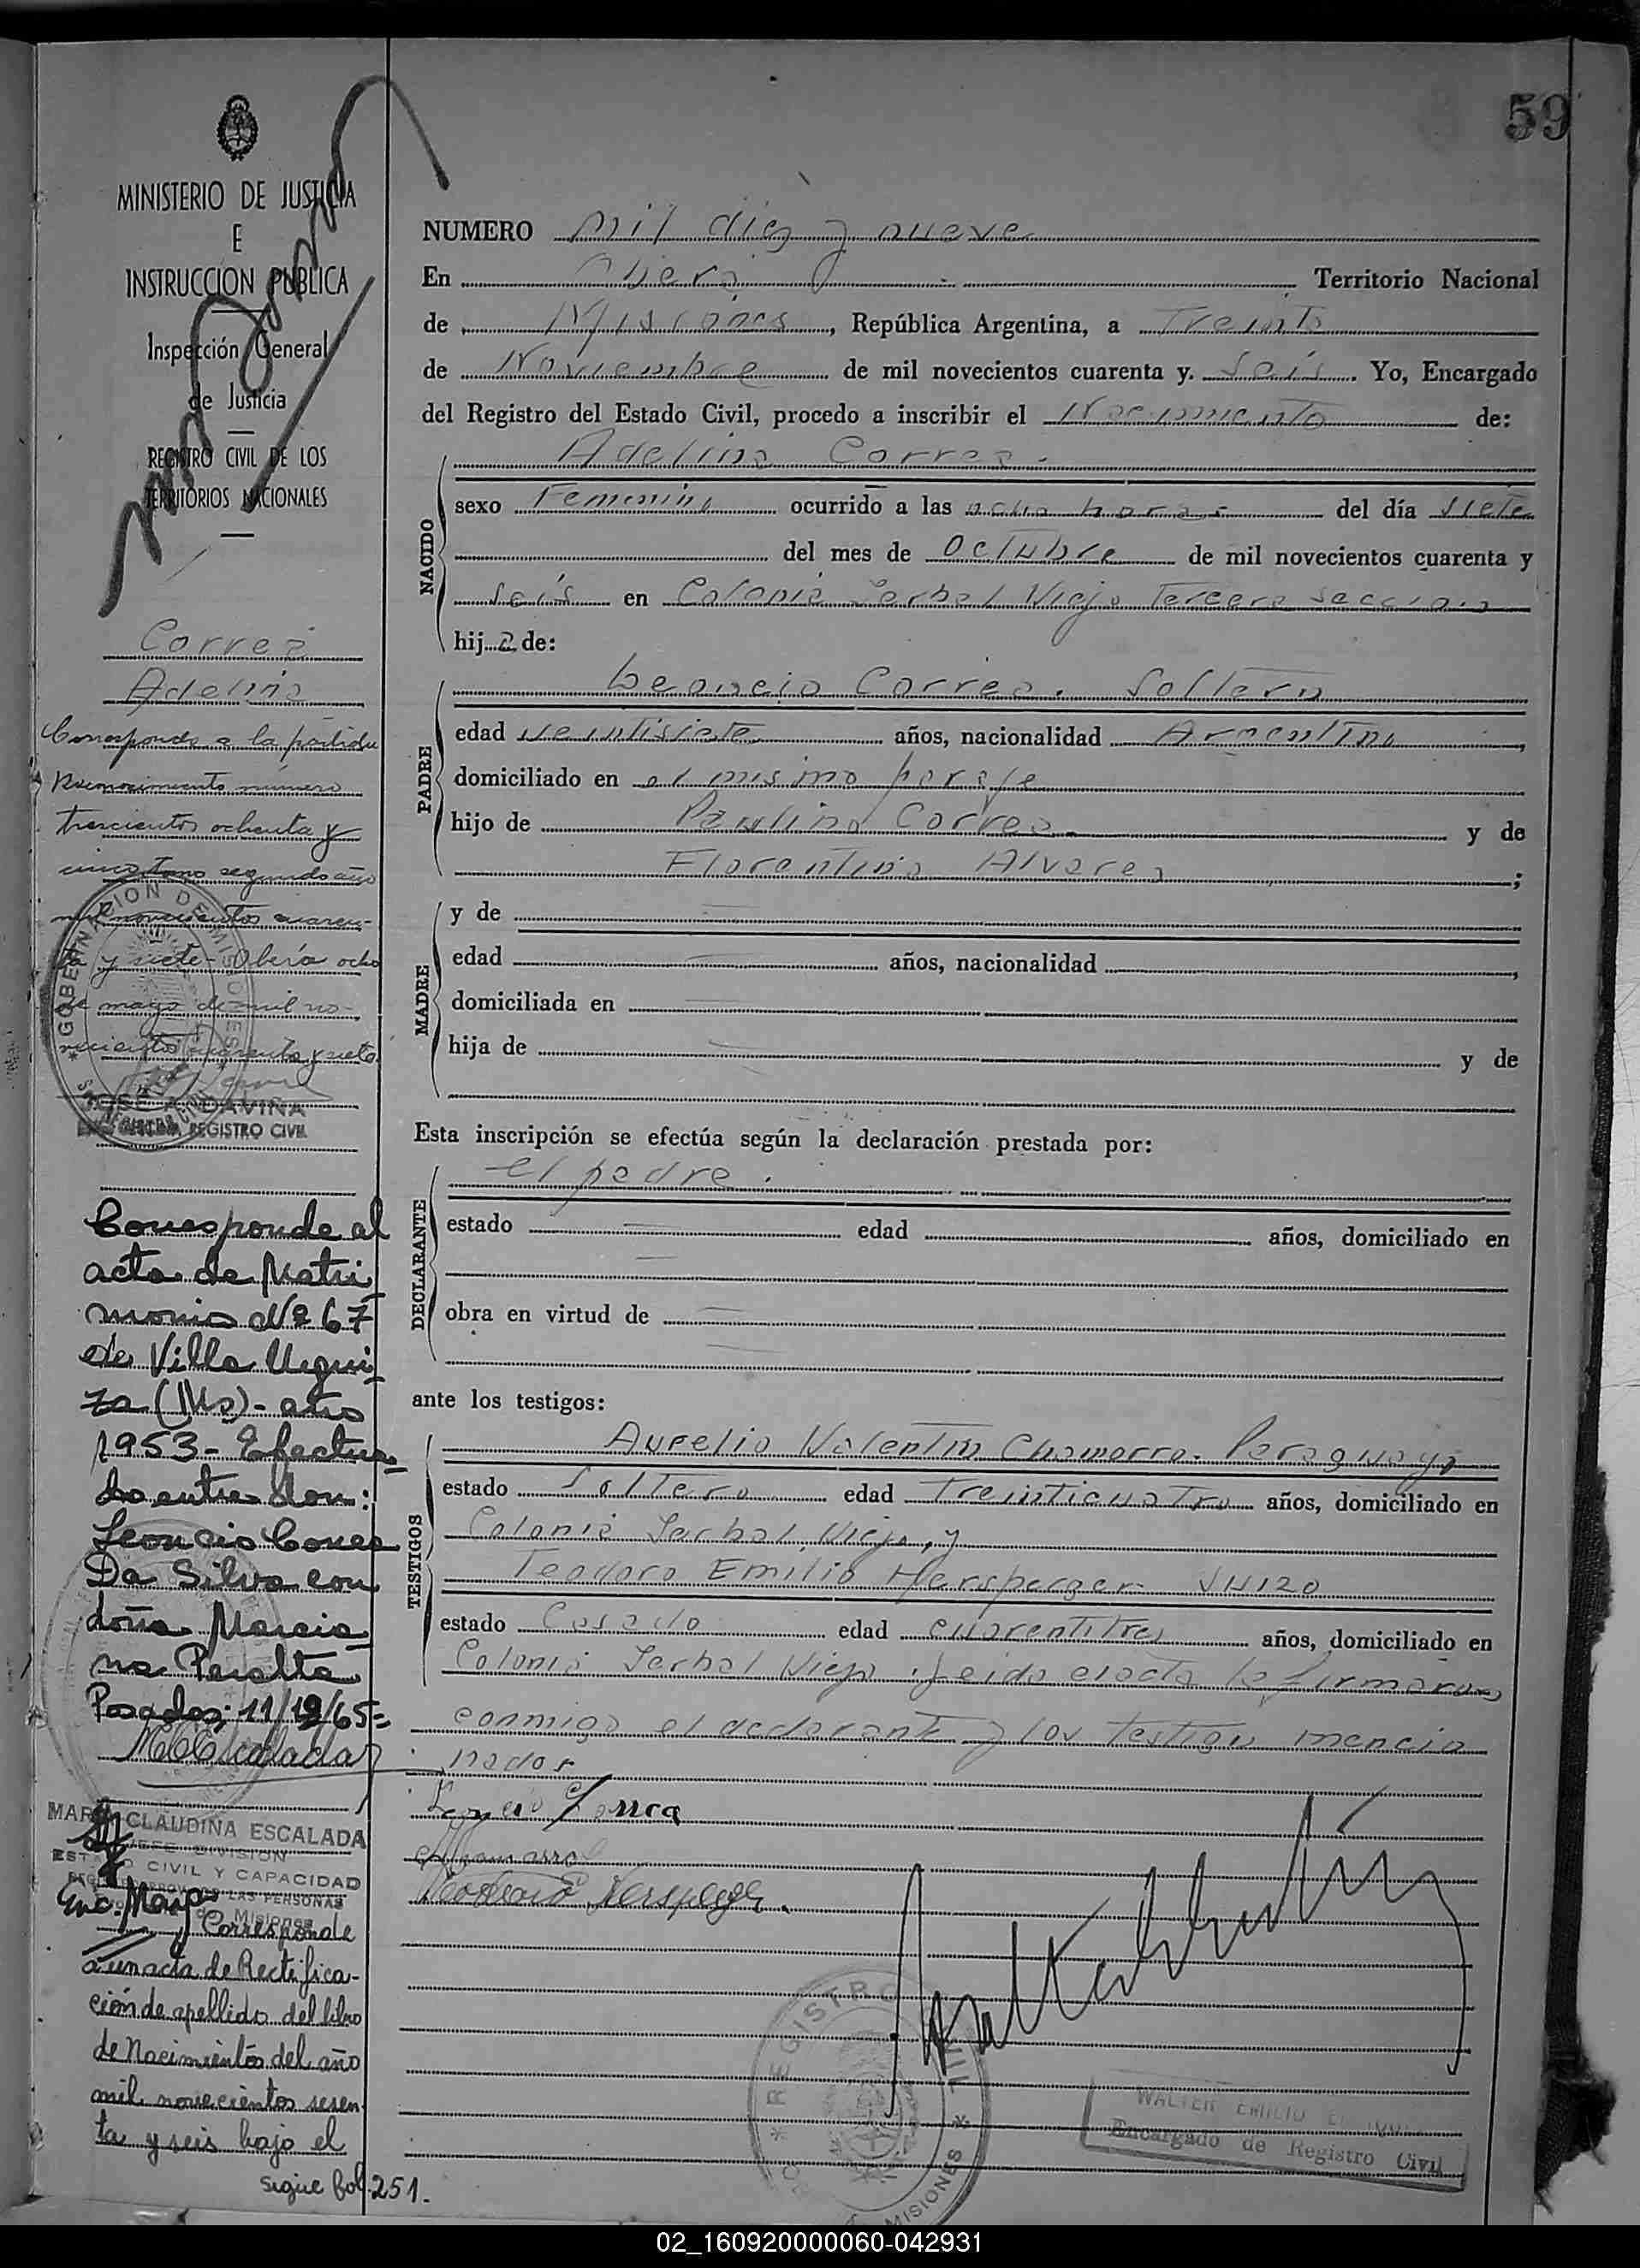 59
MINISTERIO DE JUSTICIA
E
INSTRUCCION PUBLICA
Inspección General
de Justicia
REGISTRO CIVIL DE LOS
TERRITORIOS NACIONALES
Correa
Adelina
Corresponde a la partida
Reconocimiento número
trescientos ochenta y
cinco tomo segundo año
mil novecientos cuaren-
ta y siete - Oberá ocho
de mayo de mil no-
vecientos cuarenta y siete
JOSE A. DAVIÑA
REGISTRO CIVIL
GOBERNACION DE MISIONES
Corresponde al
acta de Matri
monio Nº 67
de Villa Urqui
za (Ms) - año
1953 - Efectua
do entre don:
Leoncio Correa
Da Silva con
doña Marcia
na Peralta
Posadas: 11/12/65=
MCEscalada
MARIA CLAUDINA ESCALADA
JEFE DIVISION
ESTADO CIVIL Y CAPACIDAD
LAS PERSONAS
Misiones
Corresponde
a un acta de Rectifica-
ción de apellido del libro
de Nacimientos del año
mil novecientos sesen
ta y seis bajo el
sigue fol. 251.
NUMERO mil diez y nueve
En Oberá Territorio Nacional
de Misiones, República Argentina, a Treinta
de Noviembre de mil novecientos cuarenta y. Seis. Yo, Encargado
del Registro del Estado Civil, procedo a inscribir el Nacimiento de:
NACIDO
Adelina Correa.
sexo Femenino ocurrido a las ocho horas del día siete
del mes de Octubre de mil novecientos cuarenta y
Seis en Colonia Yerbal Viejo Tercera Seccion
hija de:
PADRE
Leoncio Correa. Soltero
edad veintisiete años, nacionalidad Argentino,
domiciliado en el mismo paraje
hijo de Paulino Correa y de
Florentina Alvarez;
MADRE
y de
edad años, nacionalidad,
domiciliada en
hija de y de
Esta inscripción se efectúa según la declaración prestada por:
DECLARANTE
el padre.
estado edad años, domiciliado en
obra en virtud de
ante los testigos:
TESTIGOS
Aurelio Valentin Chamorro. Paraguayo
estado Soltero edad Treinticuatro años, domiciliado en
Colonia Yerbal Viejo, y
Teodoro Emilio Hersperger Suizo
estado Casado edad cuarentitres años, domiciliado en
Colonia Yerbal Viejo. Leida el acta la firmaron
conmigo el declarante y los testigos mencio
nados
Leoncio Correa
Chamorro
Teodoro Hersperger.
REGISTRO CIVIL
MISIONES
WALTER EMILIO
Encargado de Registro Civil
02_160920000060-042931